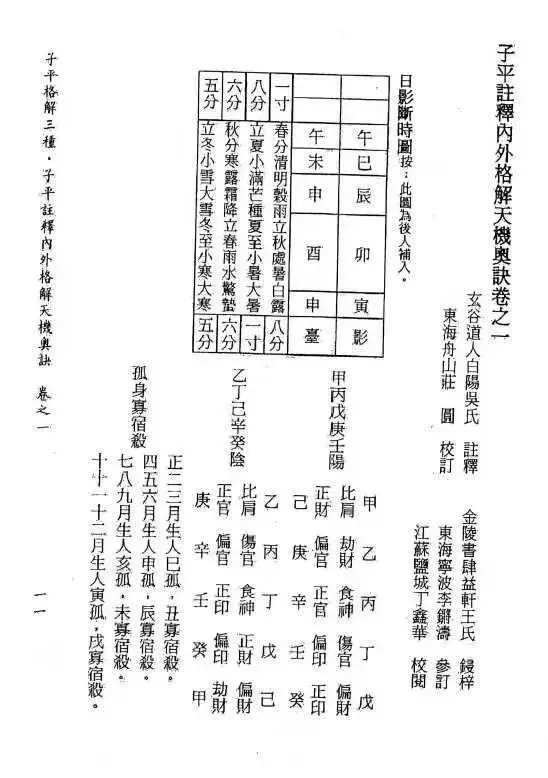 子平註釋內外格解天機奧訣卷之一
玄谷道人白陽吳氏 註釋
東海舟山莊 圓 校訂
金陵書肆益軒王氏 鋟梓
東海寧波李鏘濤 參訂
江蘇鹽城丁鑫華 校閱
日影斷時圖按：此圖為後人補入。
午 巳 辰 卯 寅 影
午 未 申 酉 申 臺
一寸 春分清明穀雨立秋處暑白露 八分
八分 立夏小滿芒種夏至小暑大暑 一寸
六分 秋分寒露霜降立春雨水驚蟄 六分
五分 立冬小雪大雪冬至小寒大寒 五分
甲丙戊庚壬陽
甲 乙 丙 丁 戊
比肩 劫財 食神 傷官 偏財
正財 偏官 正官 偏印 正印
己 庚 辛 壬 癸
乙丁己辛癸陰
乙 丙 丁 戊 己
比肩 傷官 食神 正財 偏財
正官 偏官 正印 偏印 劫財
庚 辛 壬 癸 甲
孤身寡宿殺
正二三月生人巳孤，丑寡宿殺。
四五六月生人申孤，辰寡宿殺。
七八九月生人亥孤，未寡宿殺。
十十一十二月生人寅孤，戌寡宿殺。
子平格解三種．子平註釋內外格解天機奧訣 卷之一
一一